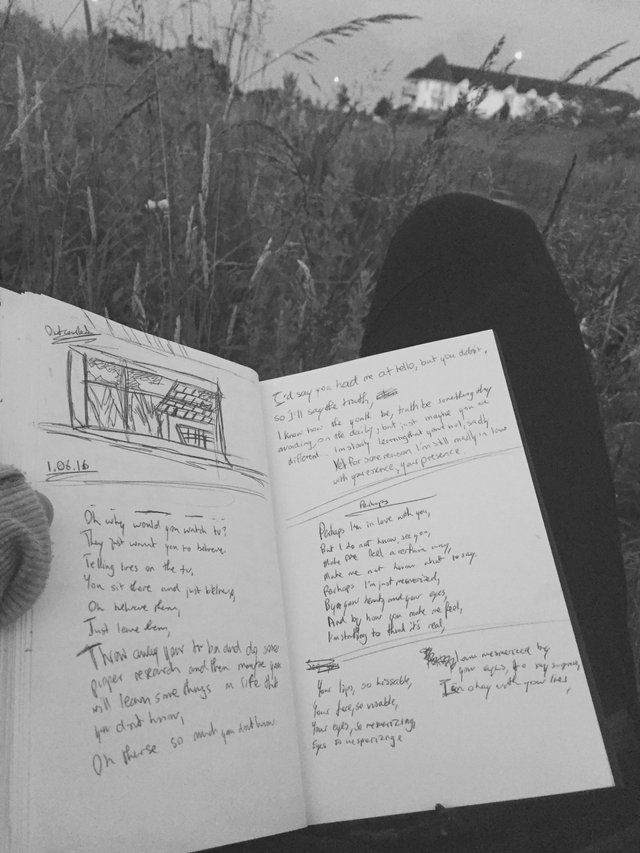 1.06.16
Oh why would you watch tv?
They just want you to believe.
Telling lies on the tv,
You sit there and just believe,
Oh believe them,
Just leave them,
Throw away your tv and do some
proper research and then maybe you
will learn some things in life that
you don't know,
Oh so much you don't know
I'd say you had me at hello, but you didn't,
so I'll say the truth,
I know how the youth be, truth be something they
avoiding, on the daily, but just maybe you are
different... I'm slowly learning that you're not, sadly
Yet for some reason I'm still madly in love
with your essence, your presence.
Perhaps
Perhaps I'm in love with you,
But I do not know, see you,
Make me feel a certain way,
Make me not know what to say.
Perhaps I'm just mesmerized,
By your beauty and your eyes,
And by how you make me feel,
I'm starting to think it's real,
Your lips, so kissable,
Your face, so
Your eyes, so mesmerizing,
Eyes so
I am mesmerized by
your eyes, to my surprise,
I'm okay with your lies,